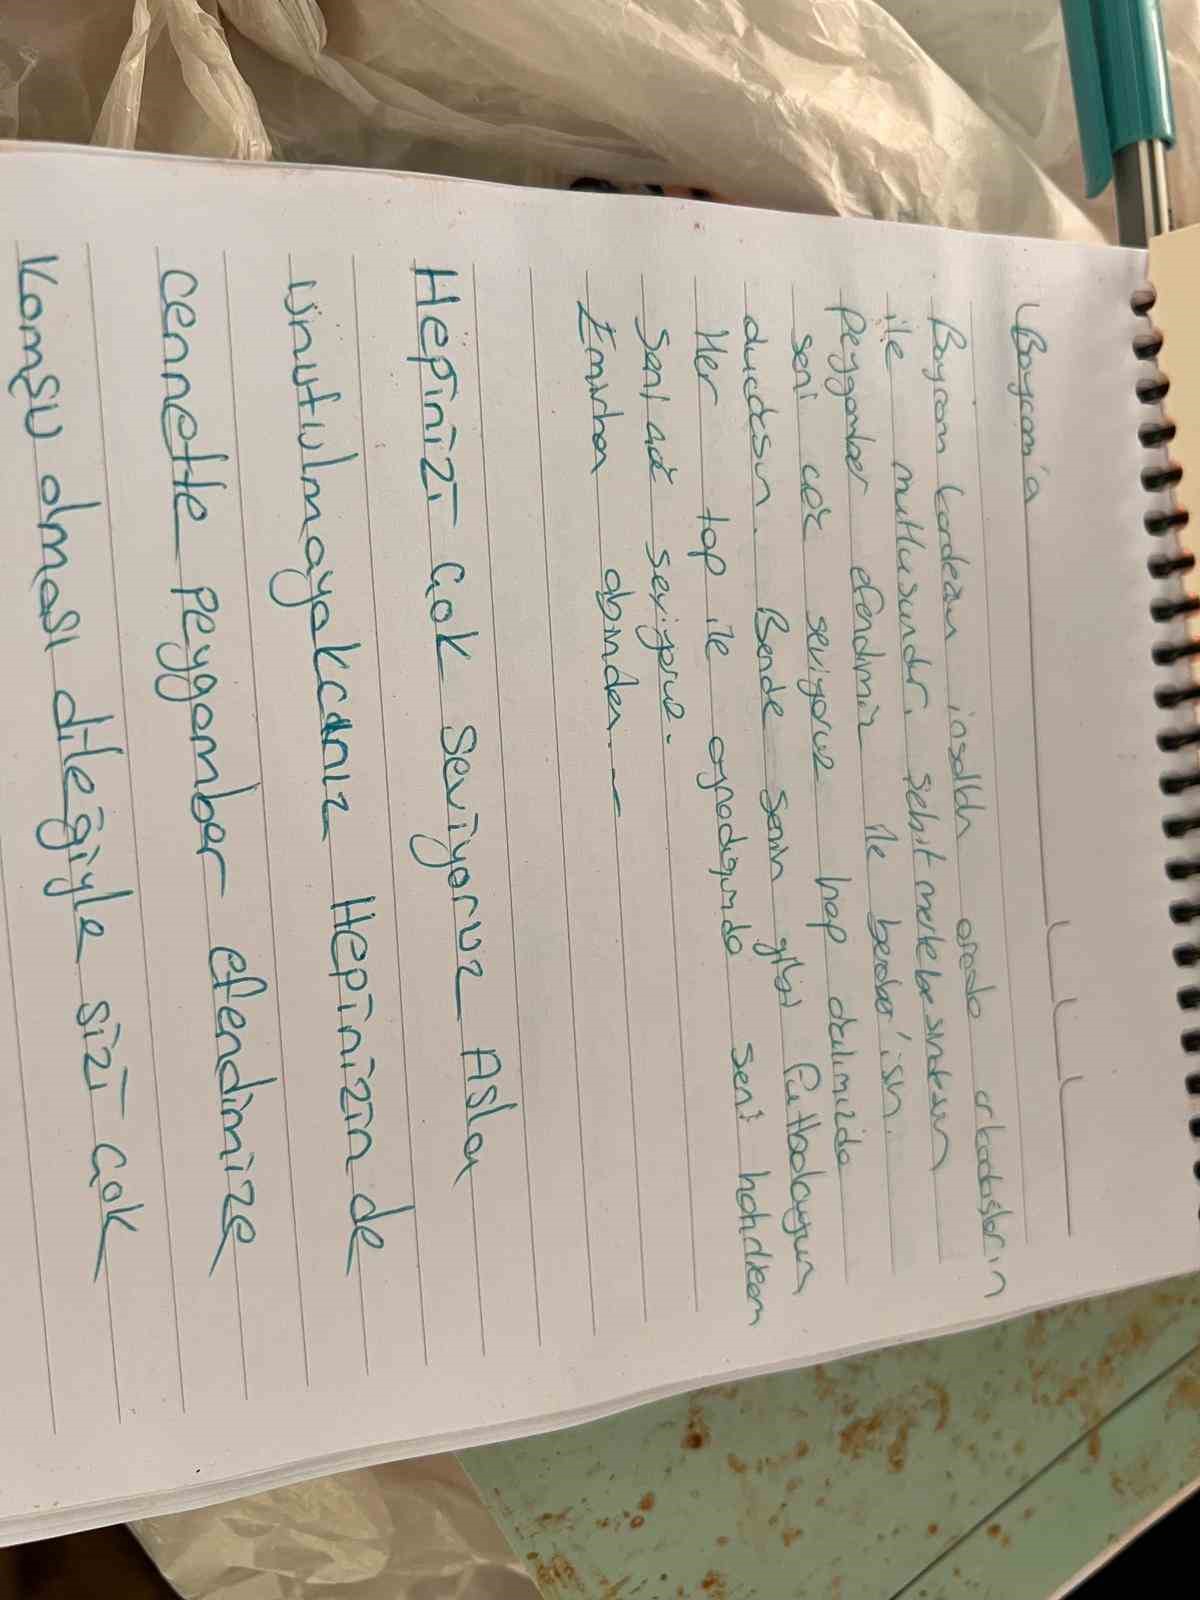 Bayram'a
Bayram kardeşim inşallah orada arkadaşların
ile mutlusundur. Şehit mertebesindesin
Peygamber efendimiz ile beraber'sin.
seni çok seviyoruz hep dalımızda
duadasın. Bende senin gibi futbolcuyum
Her top ile oynadığımda seni
Seni çok seviyoruz.
Emirhan abinden
Hepinizi çok seviyoruz Asla
unutulmayakcanız Hepinizin de
cennette Peygamber efendimize
Komşu olması dileğiyle sizi çok